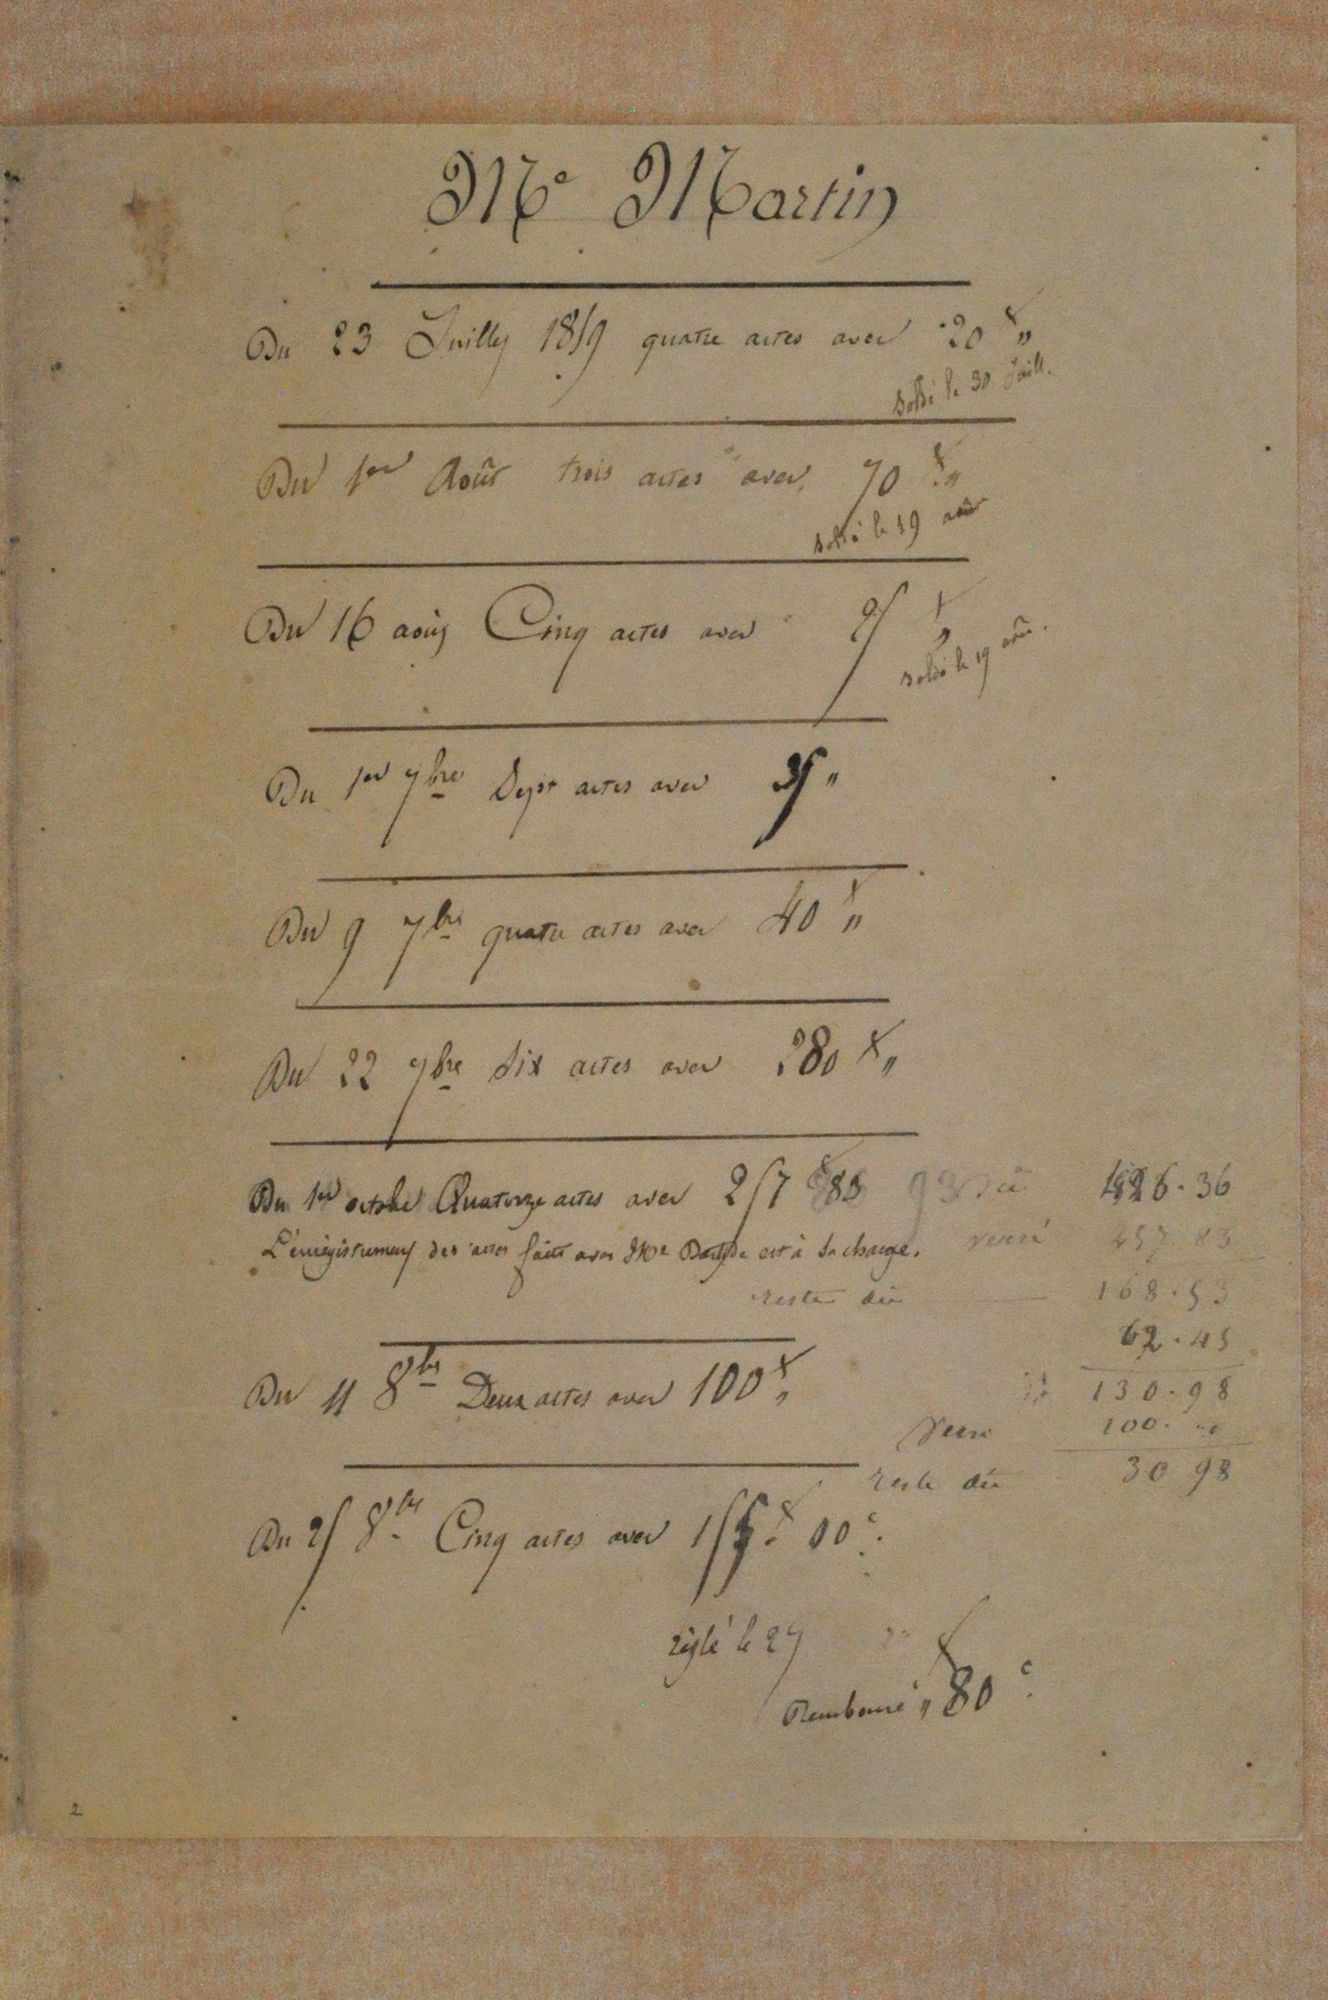 Me Martin
Du 23 Juillet 1859 quatre actes avec 20 f "
Soldé le 30 Juill.
Du 1er Août trois actes avec 70 f "
Soldé le 19 août
Du 16 août Cinq actes avec 25 f "
Soldé le 19 août.
Du 1er 7bre Sept actes avec 35 "
Du 9 7bre quatre actes avec 40 f "
Du 22 7bre Six actes avec 280 f "
Du 1er octobre Quatorze actes avec 257 f 83 dû 426.36
L'enregistrement des actes faits avec Me est à sa charge. versé 257.83
reste dû 168.53
62.45
Du 11 8bre Deux actes avec 100 f " 130.98
versé 100.00
reste dû 30 98
Du 25 8bre Cinq actes avec 155 f. 00 c.
réglé le 27
Remboursé " f 80 c.
2